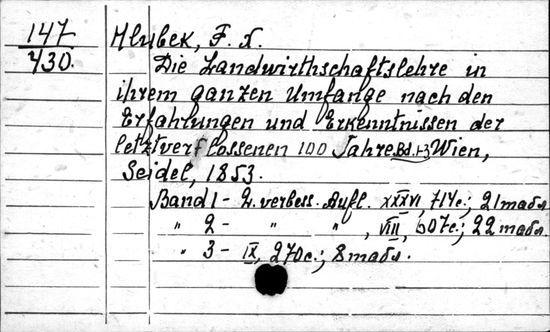 147 Hlubek, F. X.
430. Die Landwirthschaftslehre in
ihrem ganzen Umfange nach den
Erfahrungen und Erkenntnissen der
letztverflossenen 100 Jahre. Bd. 1-3 Wien,
Seidel, 1853.
Band 1 - 2. verbess. Aufl. XXXVI, 714c.; 21 табл.
" 2 - " " , VIII, 607c.; 22 табл.
" 3 - IX, 270c.; 8 табл.